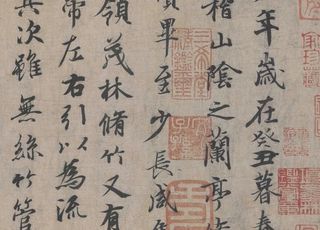 年歲在癸丑暮春
稽山陰之蘭亭脩
賢畢至少長咸集
領茂林脩竹又有
帶左右引以為流
其次雖無絲竹管